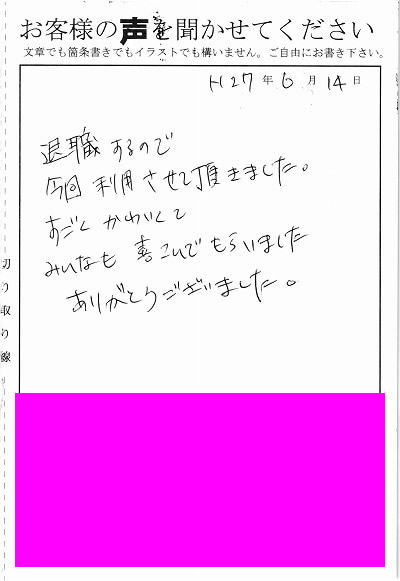 お客様の声を聞かせてください
文章でも箇条書きでもイラストでも構いません。ご自由にお書き下さい。
H27年6月14日
退職するので
今回利用させて頂きました。
すごくかわいくて
みんなも喜こんでもらいました
ありがとうございました。
切り取り線